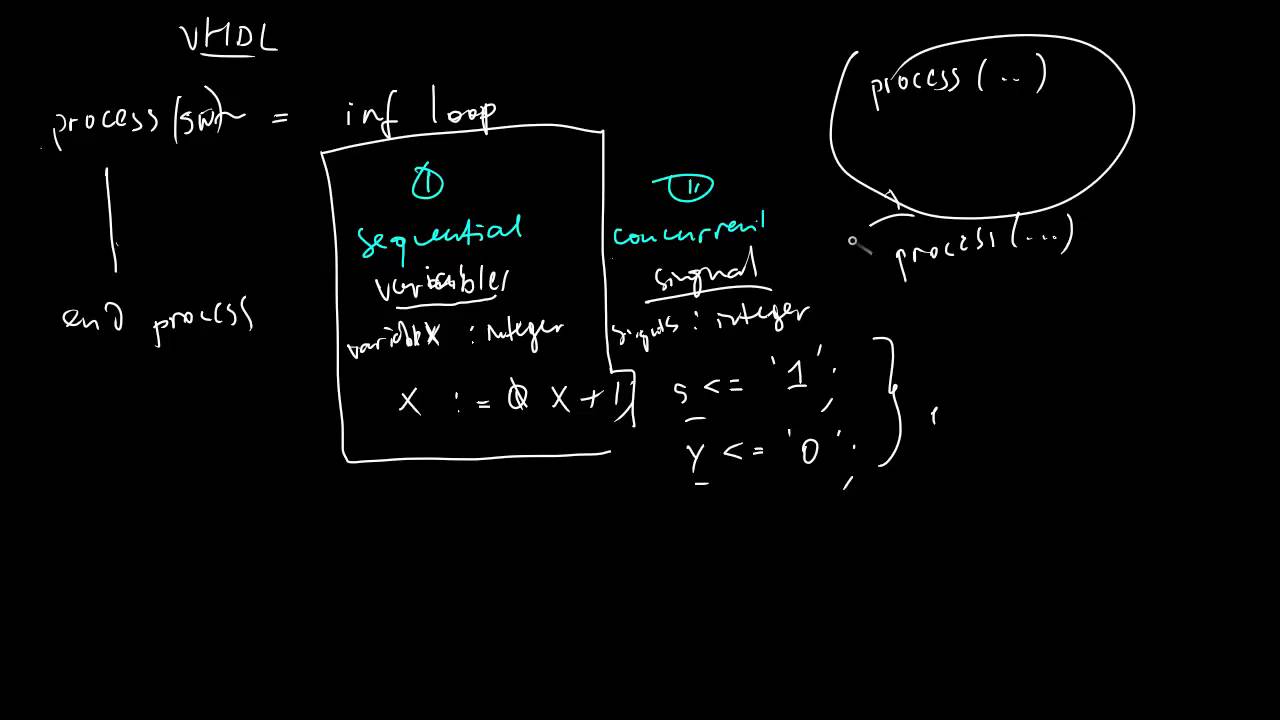 VHDL
process (sw) = inf loop
end process
①
sequential
variables
variable x : integer
x := 0 x + 1
②
concurrent
signal
signals : integer
s <= '1';
y <= '0';
process (...)
process (...)